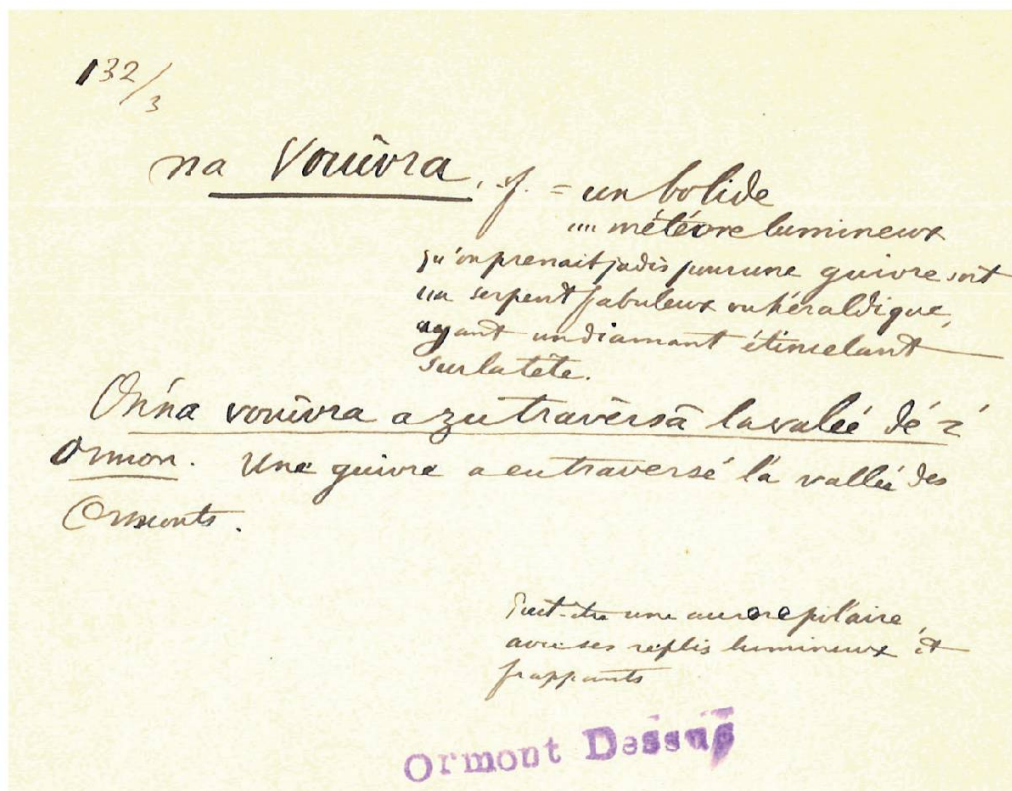 132/3
na Vouîvra, f. = un bolide
"" météore lumineux
qu'on prenait jadis pour une guivre soit
un serpent fabuleux ou héraldique,
ayant un diamant étincelant
sur la tête.
On'na vouîvra a zu travèrsâ la valéé dé z
Ormon. Une guivre a eu traversé la vallée des
Ormonts.
Peut-être une aurore polaire,
avec ses replis lumineux et
frappants
Ormont Dessus